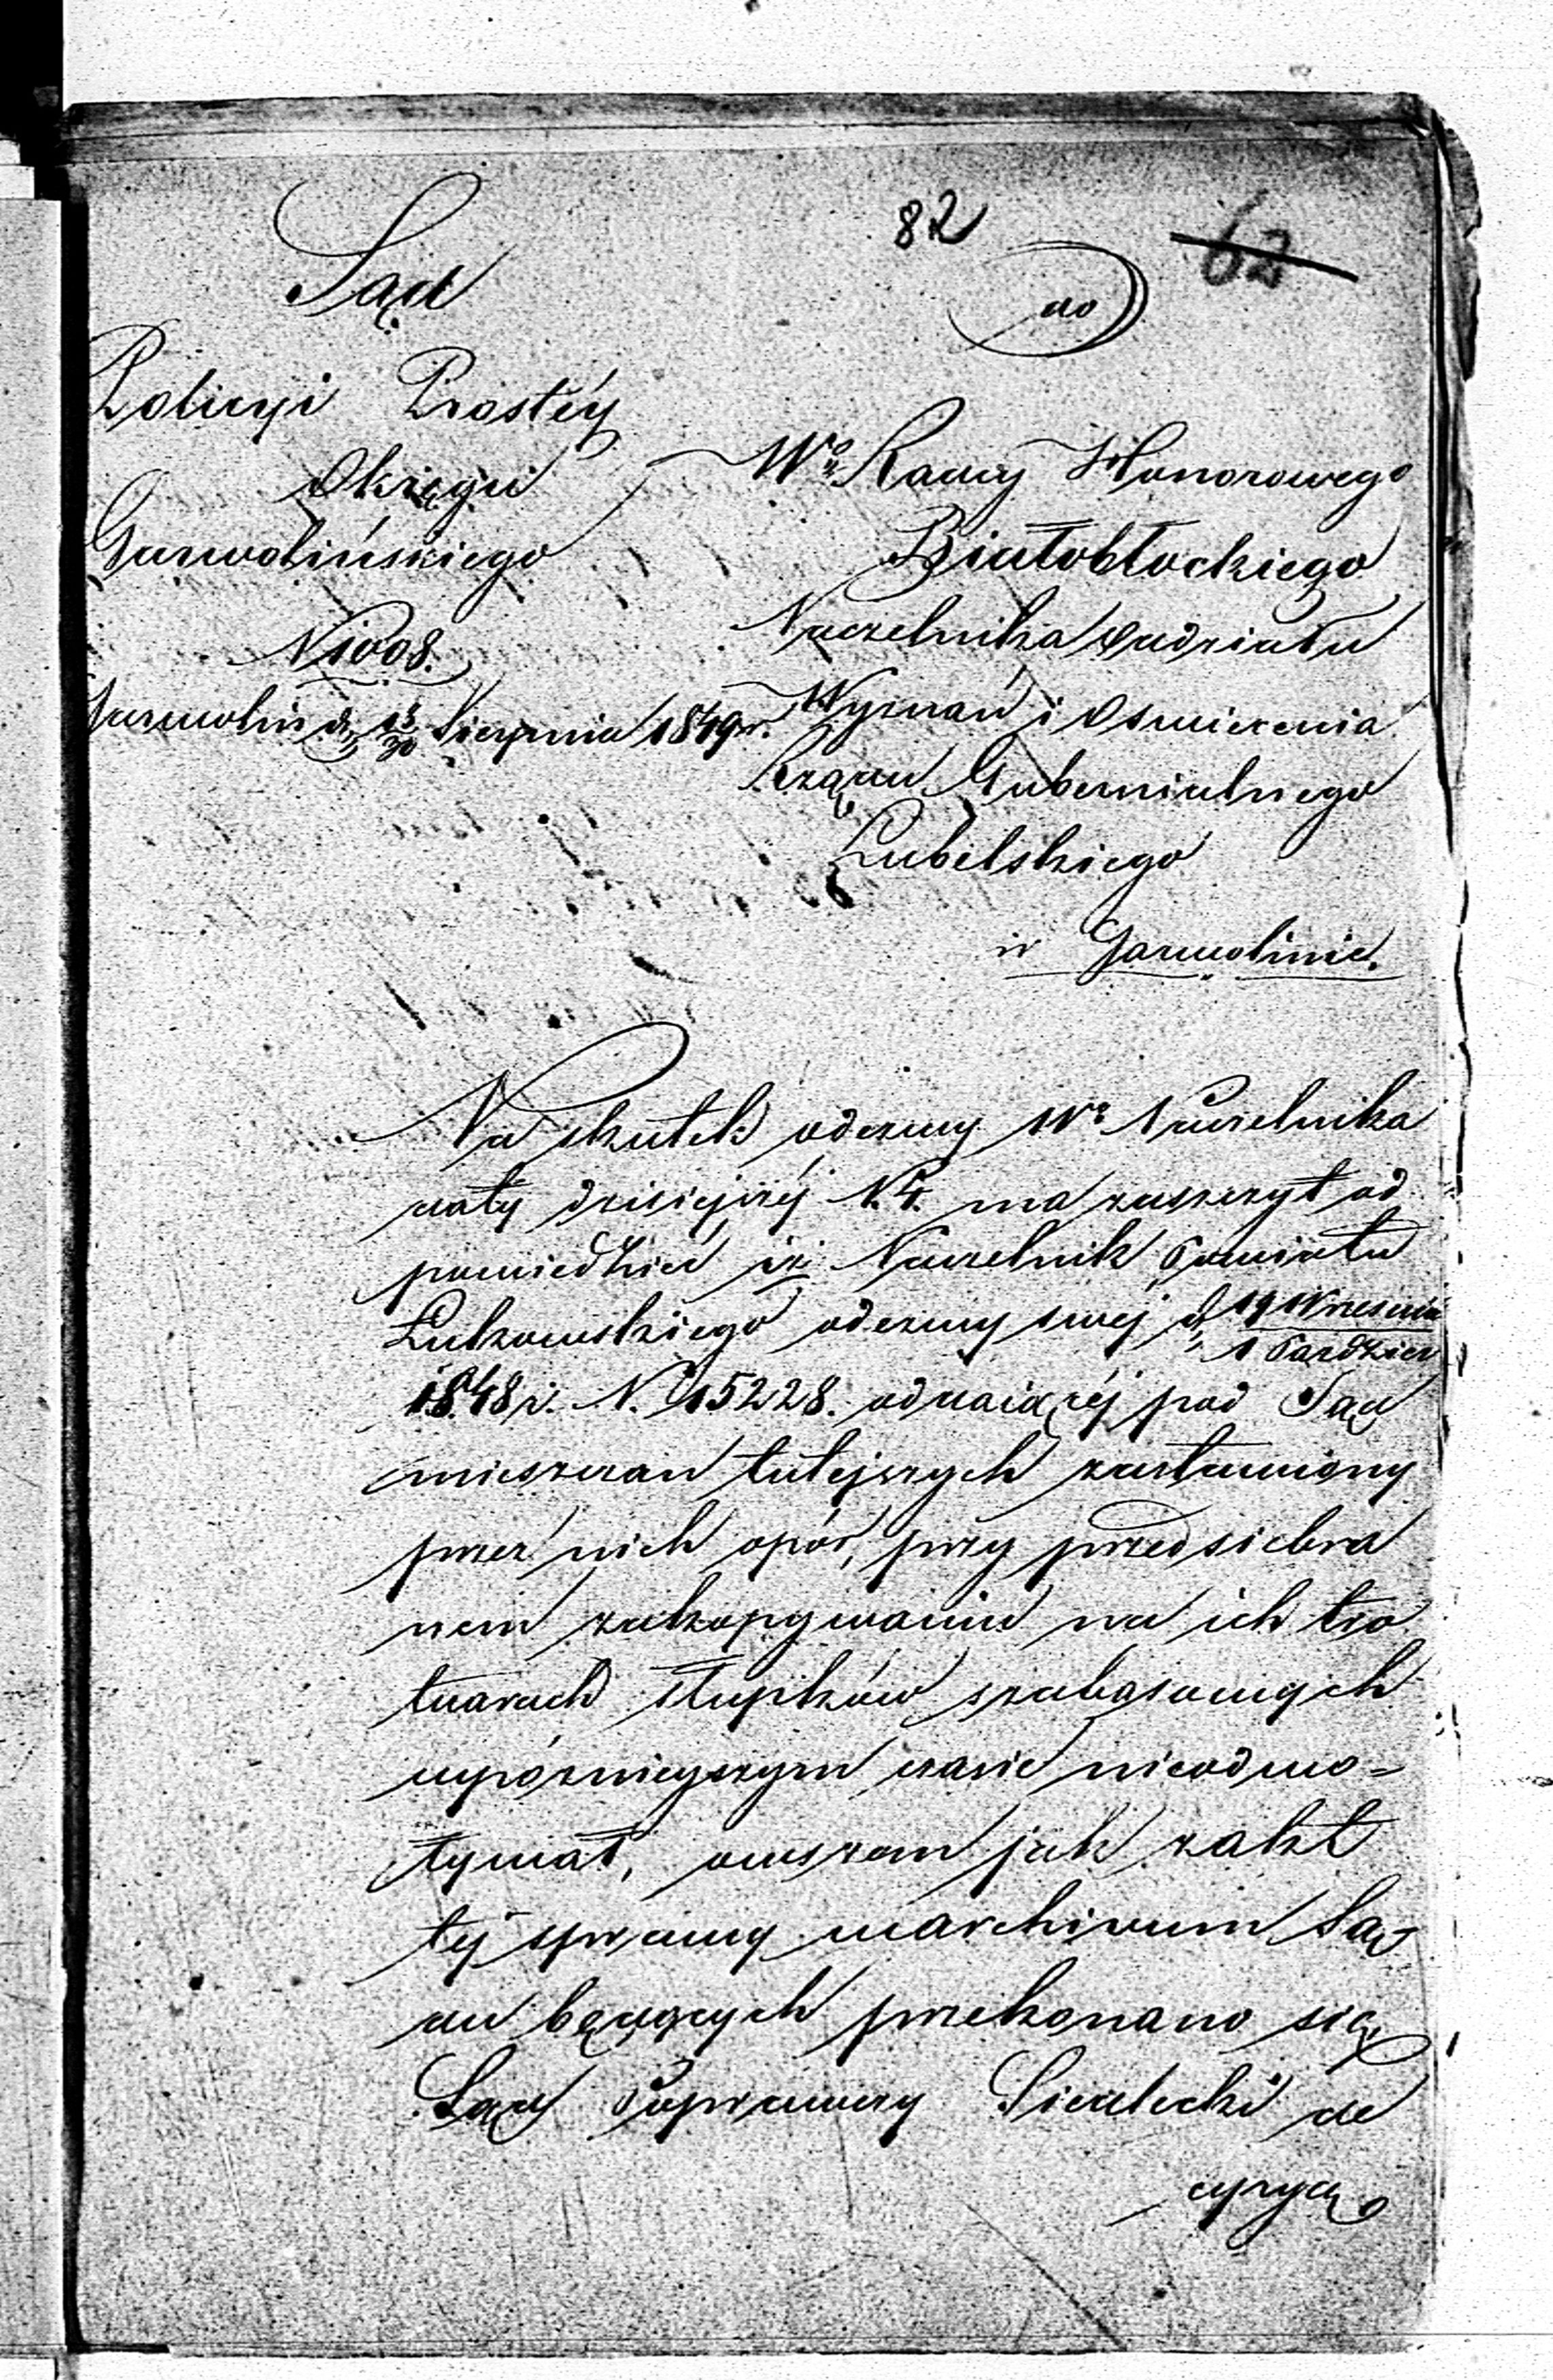 82
62
Sąd
Policyi Prostéy
Okręgu
Garwolińskiego
N 1008.
Garwolin d. 18/30 Sierpnia 1849 r.
do
Wo Radcy Honorowego
Białobłockiego
Naczelnika Oddziału
Wyznań i Oswiecenia
Rządu Gubernialnego
Lubelskiego
w Garwolinie.
Na skutek odezwy Wo Naczelnika
daty dzisiejszéj N. 4. ma zaszczyt od
powiedzieć iż Naczelnik Powiatu
Łukowskiego odezwy swej d. 19 Wrzesnia / 1 Pazdzier
1848 r. N. 15228. oddaiącéj pod Sąd
mieszczan tutejszych zastawiony
przez nich opór, przy przedsiebra
nem zakopywaniu na ich tro
tuarach słupków szabasowych
wpózniejszym czasie nieodwo=
ływał, owszem jak zakt
téj sprawy warchiwum Są
du będących przekonano się
Sąd Poprawczy Siedlecki de
cyzyą